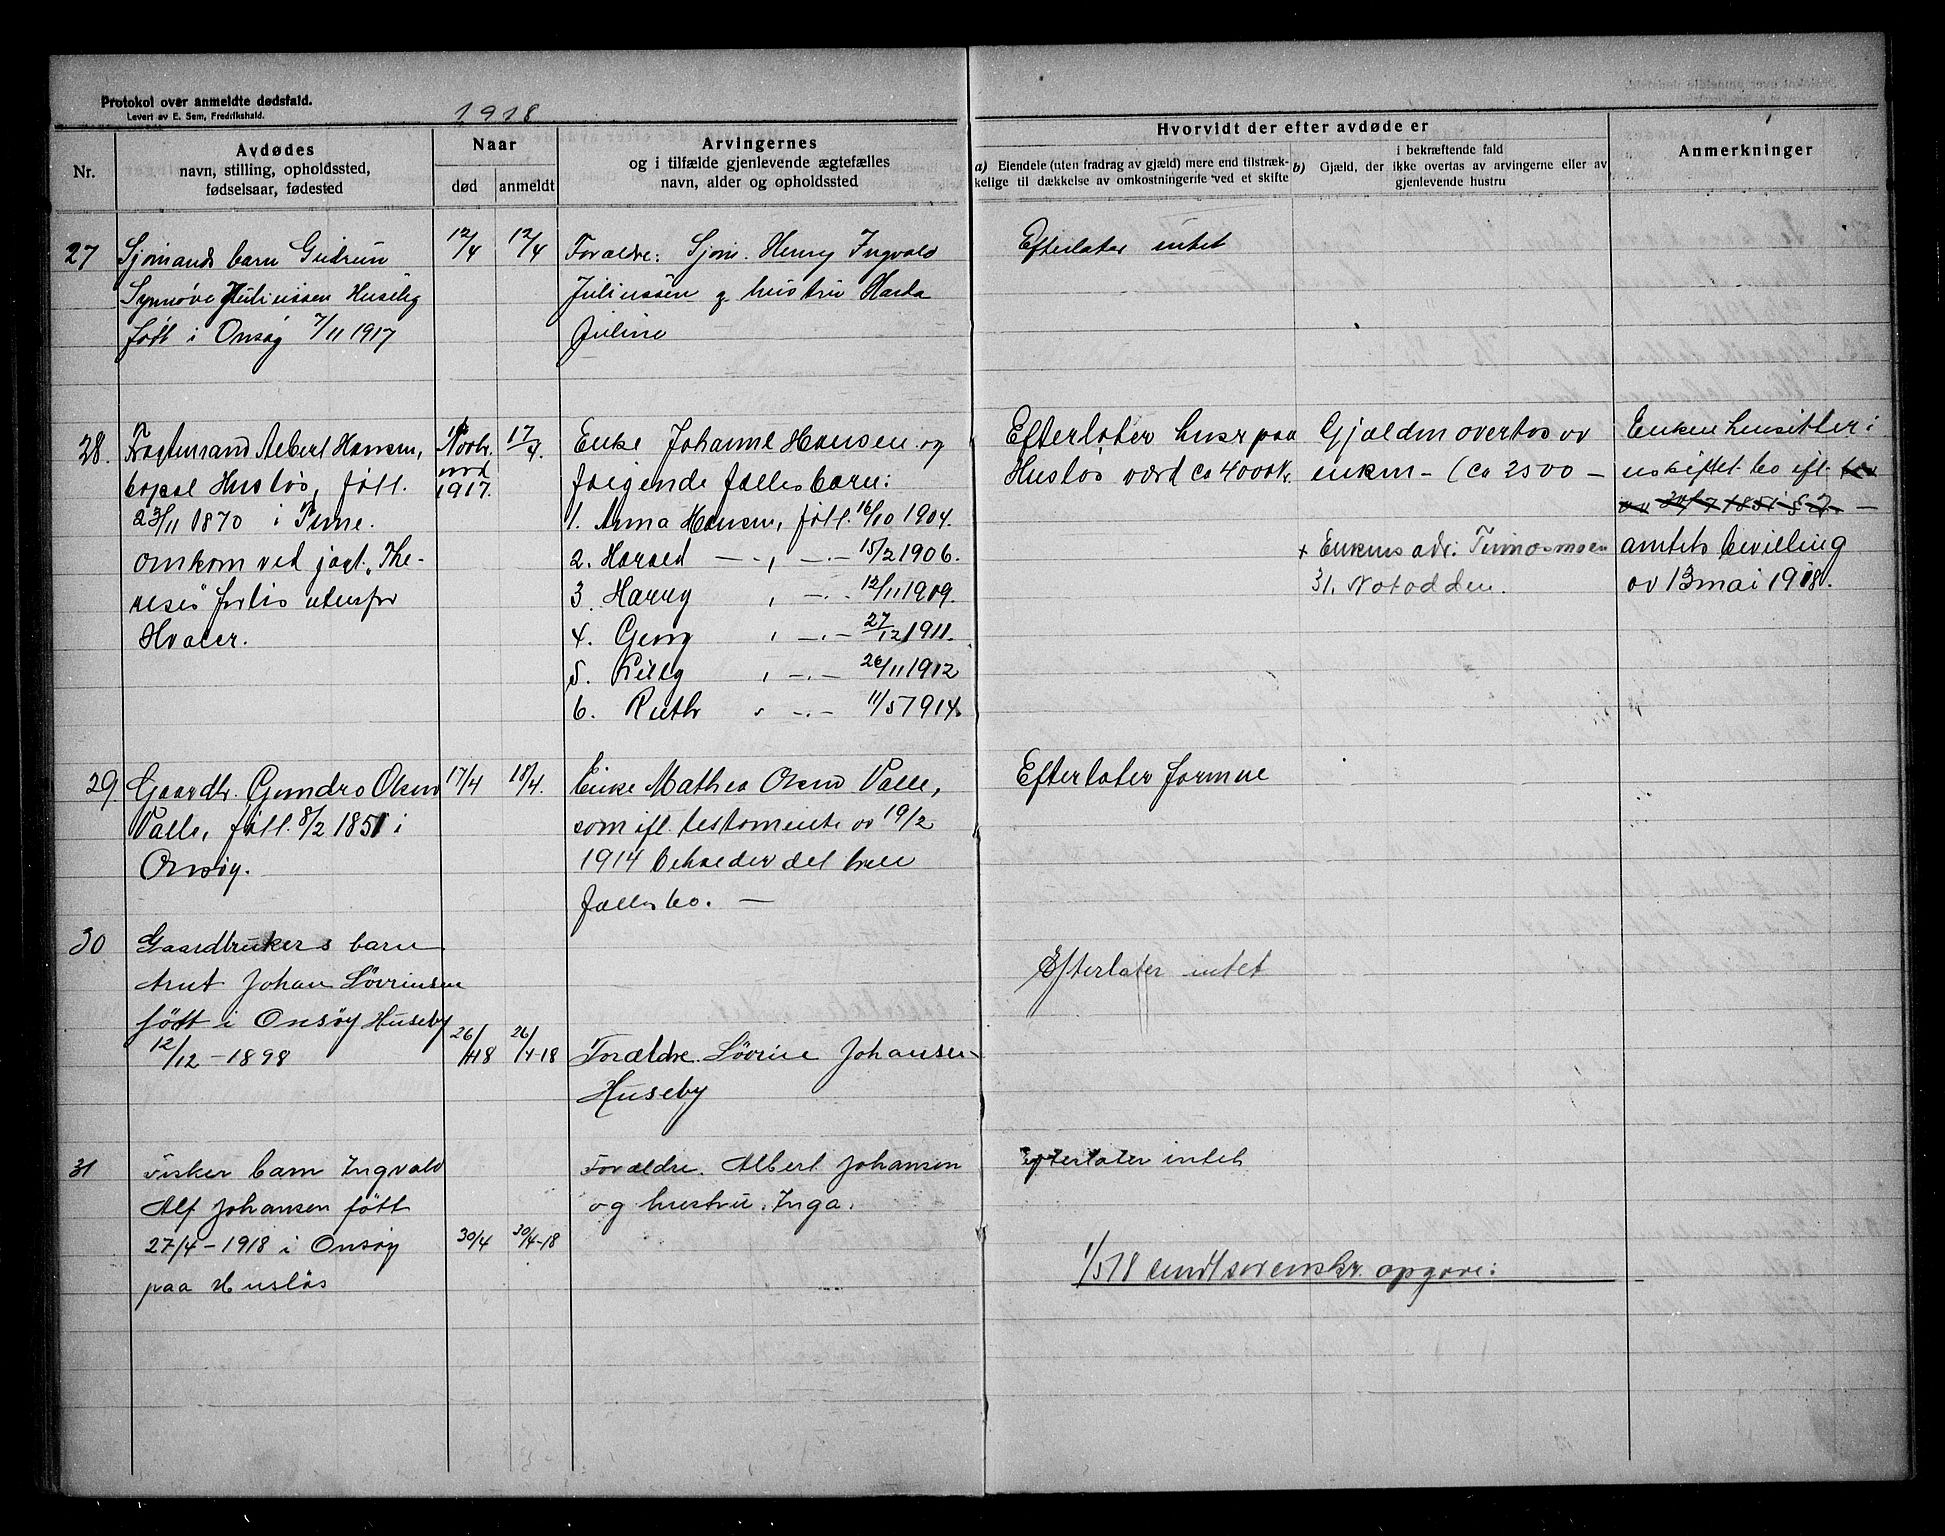 Protokol over anmeldte dødsfald.
Levert av E. Sem, Fredrikshald.
1918
Nr.
Avdødes
navn, stilling, opholdssted,
fødselsaar, fødested
Naar
død
anmeldt
Arvingernes
og i tilfælde gjenlevende ægtefælles
navn, alder og opholdssted
Hvorvidt der efter avdøde er
a) Eiendele (uten fradrag av gjæld) mere end tilstræk-
kelige til dækkelse av omkostningerne ved et skifte
b) Gjæld, der
i bekræftende fald
ikke overtas av arvingerne eller av
gjenlevende hustru
Anmerkninger
27
Sjømands barn Gudrun
Synnøve Juliussen Huseby
født i Onsøy 7/11 1917
12/4
12/4
Forældre: Sjøm. Henry Ingvald
Juliussen og hustru
Juline
Efterlater intet
28.
Albert Hansen,
bopæl Husløs, født
23/11 1870 i Tune.
omkom ved jagt. "The-
rese" forlis utenfor
Hvaler.
Novbr.
1917.
17/4.
Enke Johanne Hansen og
følgende fællesbarn:
1. Anna Hansen, født 16/10 1904.
2. Harald — „ — 15/2 1906.
3. Harry „ — 12/11 1909.
4. Georg „ — 27/12 1911.
5. Willy „ — 26/11 1912
6. Ruth „ — 11/5 1914
Efterlater hus paa
Husløs værd ca 4000 kr.
Gjælden overtas av
enken - (ca 2500 —
+ Enkens adr:
31. Notodden.
Enken hensitter i
uskiftet bo ifl. lov
av 30/7 1851 § 2. —
amtets bevilling
av 13 mai 1918.
29
Gaardbr. Olsen
Valle, født 8/2 1851 i
Onsøy.
17/4
18/4.
Enke Mathea Olsen Valle,
som ifl. testamente av 19/2
1914 beholder det hele
fællesbo. —
Efterlater formue
30
Gaardbrukers barn
Arnt Johan Lövrinsen
født i Onsøy Huseby
12/12 - 1898
26/4 18
26/4-18
Forældre. Lövrine Johansen
Huseby
Efterlater intet
31
Fisker barn Ingvald
Alf Johansen født
27/4 - 1918 i Onsøy
paa Husløs
30/4
30/4-18
Forældre. Albert Johansen
og hustru. Inga.
Efterlater intet
1/5 18 sendt sorenskr. opgave: